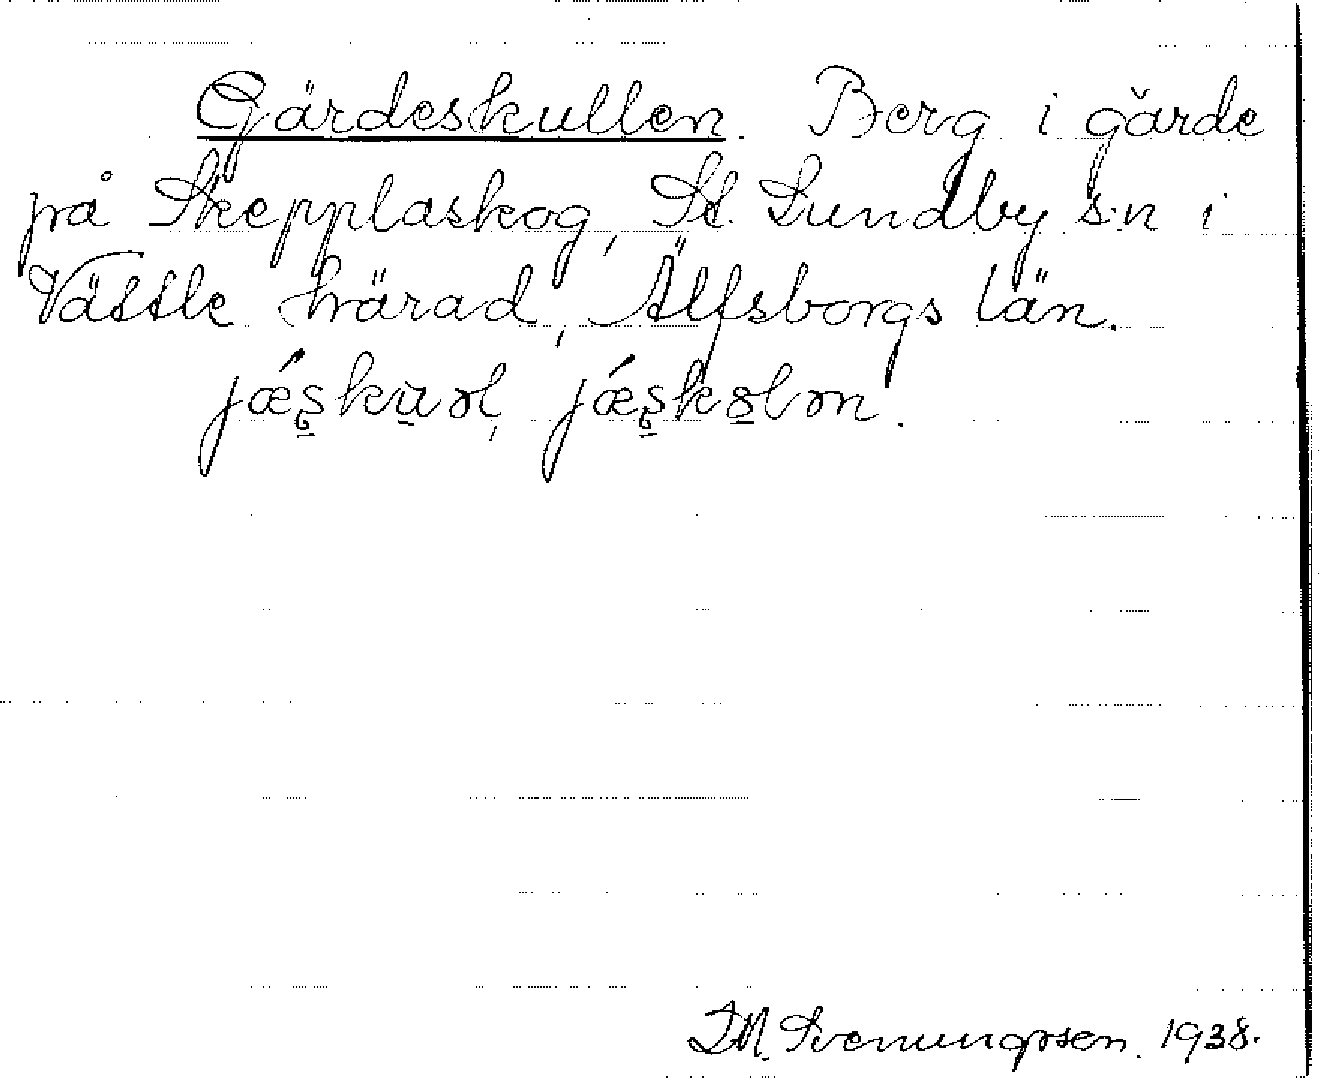 Gärdeskullen. Berg i gärde
på Skepplaskog, St. Lundby s:n i
Vättle härad, Älfsborgs län.
I.M. Svenungsson. 1938.